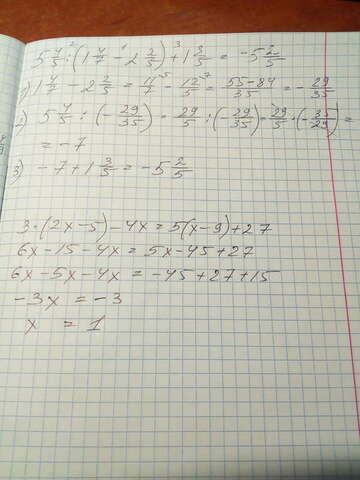 5 4/5 : (1 4/7 - 2 2/5) + 1 3/5 = -5 2/5
1) 1 4/7 - 2 2/5 = 11/7 - 12/5 = 55-84/35 = - 29/35
2) 5 4/5 : (- 29/35) = 29/5 : (- 29/35) = 29/5 · (- 35/29) =
= -7
3) -7 + 1 3/5 = -5 2/5
3·(2x-5)-4x=5(x-9)+27
6x-15-4x=5x-45+27
6x-5x-4x=-45+27+15
-3x=-3
x = 1